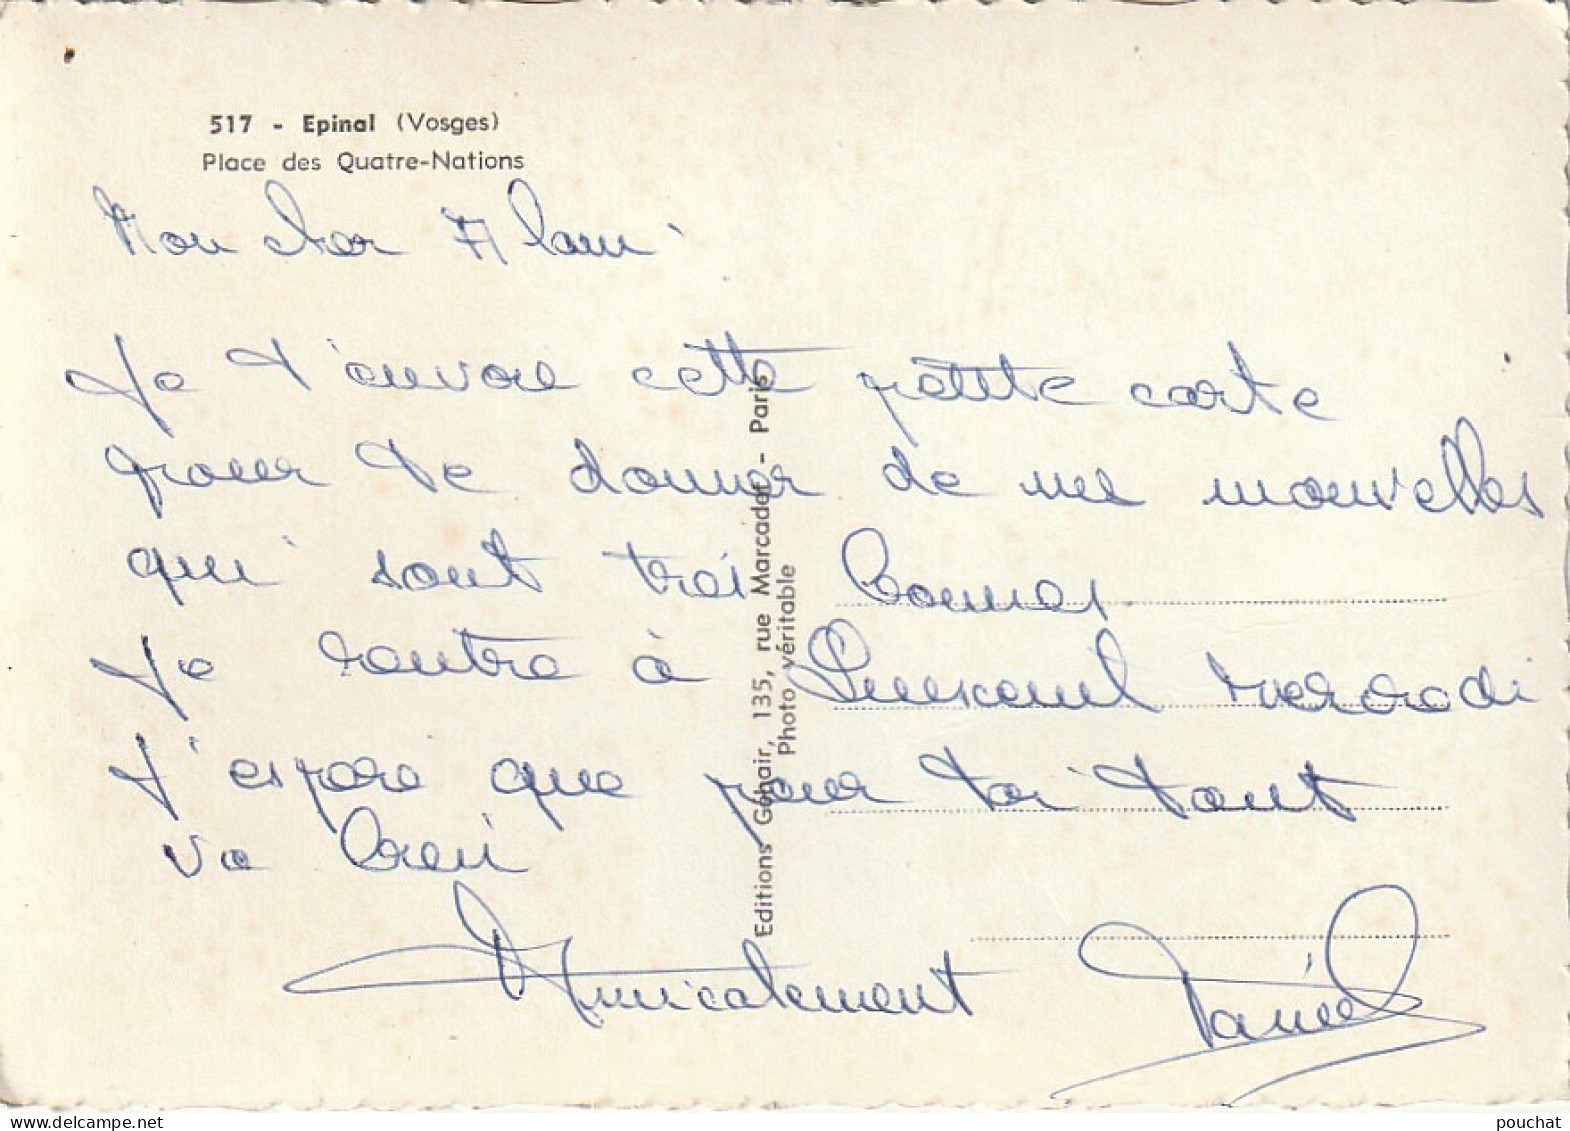 517 - Epinal (Vosges)
Place des Quatre-Nations
Mon cher Alain
Je t'envoie cette petite carte
pour te donner de me nouvelles
qui sont très bonnes.
Je rentre à Luxeuil mercredi
J'espère que pour toi tout
va bien
Musicalement Daniel
Editions Géhair, 135, rue Marcadet - Paris
Photo véritable
pouchat